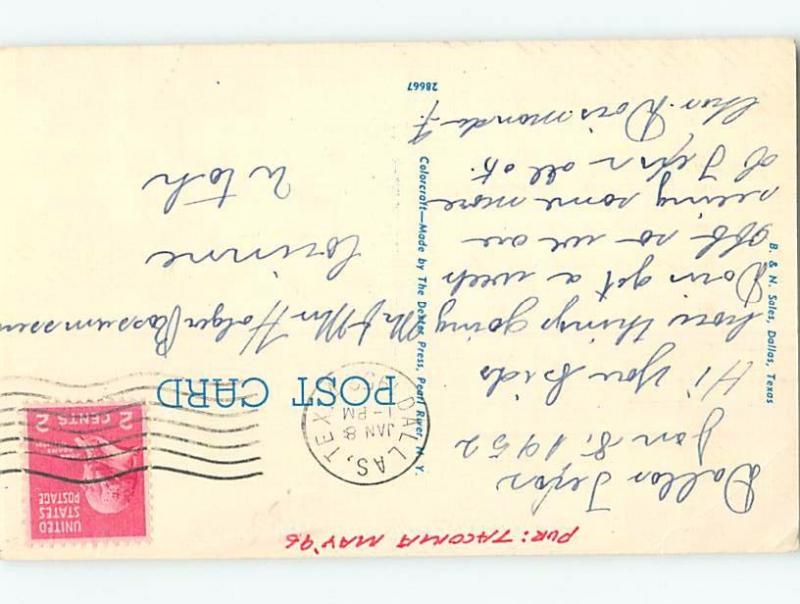 PUR: TACOMA MAY '96
Dallas Texas
Jan 8. 1952
Hi You Kids
how things going
Dorn get a week
off so we are
seeing some more
of Texas all ok.
Chas. Doris. monda J.
B. & N. Sales, Dallas, Texas
Colorcraft—Made by The Dexter Press, Pearl River, N. Y.
28667
POST CARD
DALLAS, TEX
JAN 8
1-PM
UNITED
STATES
POSTAGE
2 CENTS 2
Mr & Mrs Holger Rassumssen
Corinne
Utah